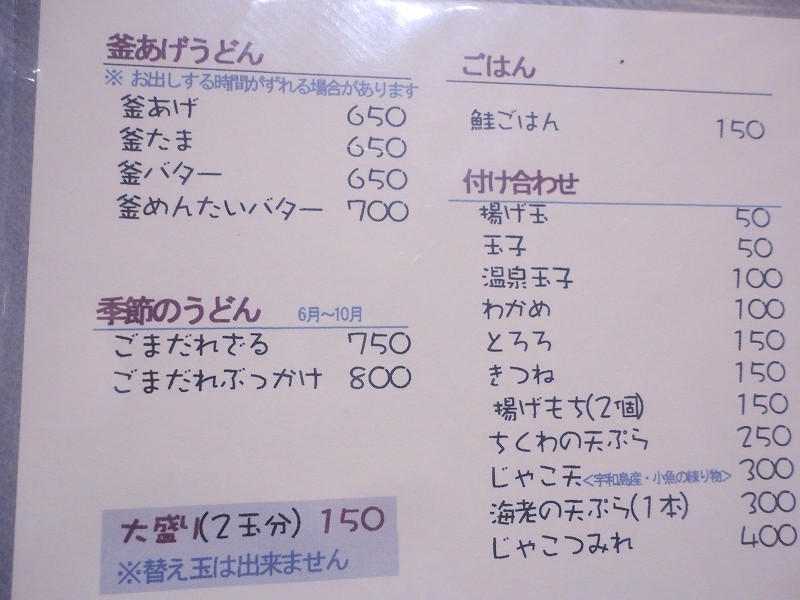 釜あげうどん
※ お出しする時間がずれる場合があります
釜あげ 650
釜たま 650
釜バター 650
釜めんたいバター 700
季節のうどん 6月～10月
ごまだれざる 750
ごまだれぶっかけ 800
大盛り(2玉分) 150
※替え玉は出来ません
ごはん
鮭ごはん 150
付け合わせ
揚げ玉 50
玉子 50
温泉玉子 100
わかめ 100
とろろ 150
きつね 150
揚げもち(2個) 150
ちくわの天ぷら 250
じゃこ天<宇和島産・小魚の練り物> 300
海老の天ぷら(1本) 300
じゃこつみれ 400